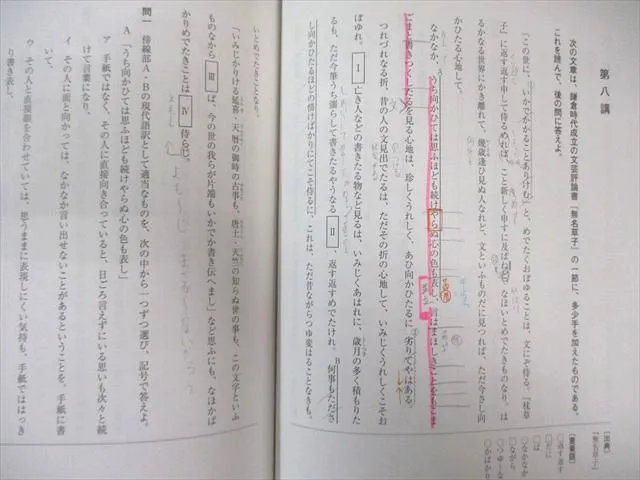 第八講
次の文章は、鎌倉時代成立の文芸評論書『無名草子』の一節に、多少手を加えたものである。
これを読んで、後の問に答えよ。
「この世に、いかでかかることありけむと、めでたくおぼゆることは、文にぞ侍る。『枕草
子』に返す返す申して侍るめれば、こと新しく申すに及ばねど、なほいとめでたきものなり。は
るかなる世界にかき離れて、幾歳逢ひ見ぬ人なれど、文といふものだに見つれば、ただ今さし向
かひたる心地して、
なかなか、うち向かひては思ふほども続けやらぬ心の色も表し、言はまほしきことをもこま
ごまと書きつくしたるを見る心地は、珍しくうれしく、あひ向かひたるに劣りてやはある。
つれづれなる折、昔の人の文見出でたるは、ただその折の心地して、いみじくうれしくこそお
ぼゆれ。Ⅰ亡き人などの書きたる物など見るは、いみじくあはれに、歳月の多く積もりた
るも、ただ今筆うち濡らして書きたるやうなるⅡ、返す返すめでたけれ。何事もたださ
し向かひたるほどの情けばかりにてこそ侍るに、これは、ただ昔ながらつゆ変はることなきも、
いとめでたきことなり。
「いみじかりける延喜・天暦の御時の古事も、唐土・天竺の知らぬ世の事も、この文字といふ
ものなからⅢば、今の世の我らが片端もいかでか書き伝へまし」など思ふにも、なほかば
かりめでたきことはⅣ侍らじ。
問一 傍線部A・Bの現代語訳として適当なものを、次の中から一つずつ選び、記号で答えよ。
A「うち向かひては思ふほども続けやらぬ心の色も表し」
ア 手紙ではなく、その人に直接向き合っていると、日ごろ言えずにいる思いも次々と続
けて言葉になり、
イ その人に面と向かっては、なかなか言い出せないことがあるということを、手紙に書
いて、
ウ その人と直接顔を合わせていては、思うままに表現しにくい気持ちも、手紙でははっき
り書き表し、
〔出典〕
『無名草子』
〔重要語〕
○返す返す
○だに
○は
○なかなか
○ながら
○つゆ〜な
○かばかり